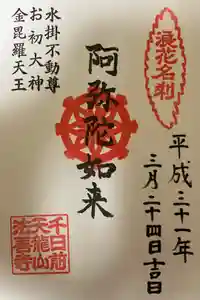 浪花名刹
平成三十一年
三月二十四日吉日
阿弥陀如来
水掛不動尊
お初大神
金毘羅天王
千日前
天龍山
法善寺